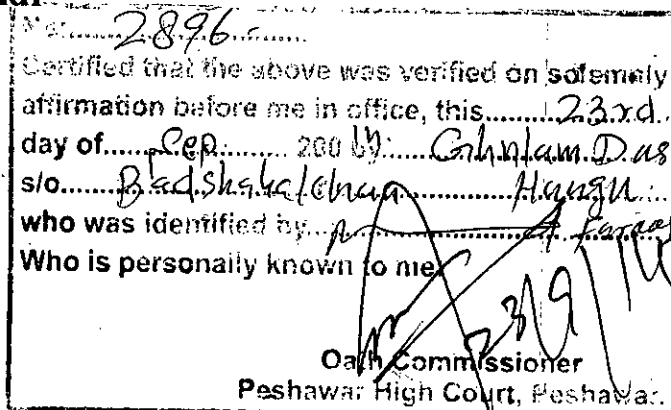 No: 2896
Certified that the above was verified on solemnly
affirmation before me in office, this 23rd
day of Sep 200 by Ghulam Das
s/o Badshah Hangu
who was identified by
Who is personally known to me
23/9/14
Oath Commissioner
Peshawar High Court, Peshawar.